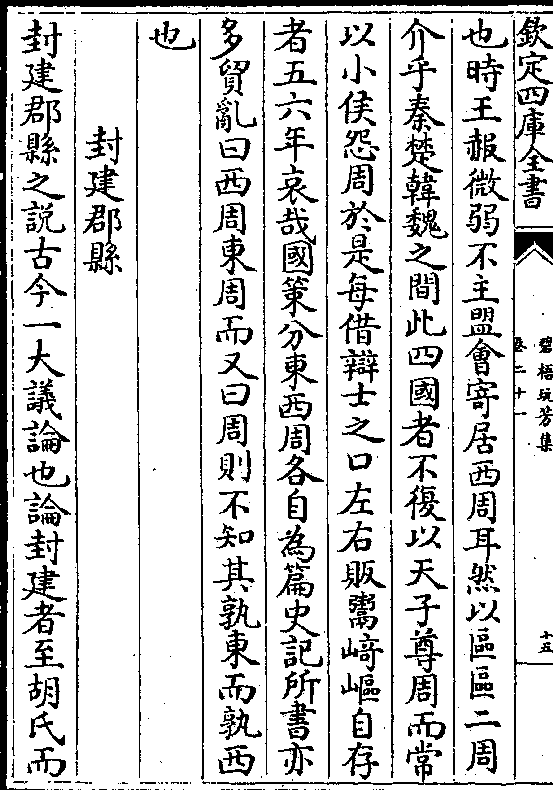 欽定四庫全書
碧梧玩芳集
卷二十一
十五
也時王赧微弱不主盟會寄居西周耳然以區區二周
介乎秦楚韓魏之間此四國者不復以天子尊周而常
以小侯怨周於是每借辯士之口左右販鬻﨑嶇自存
者五六年哀哉國策分東西周各自為篇史記所書亦
多貿亂曰西周東周而又曰周則不知其孰東而孰西
也
封建郡縣
封建郡縣之説古今一大議論也論封建者至胡氏而